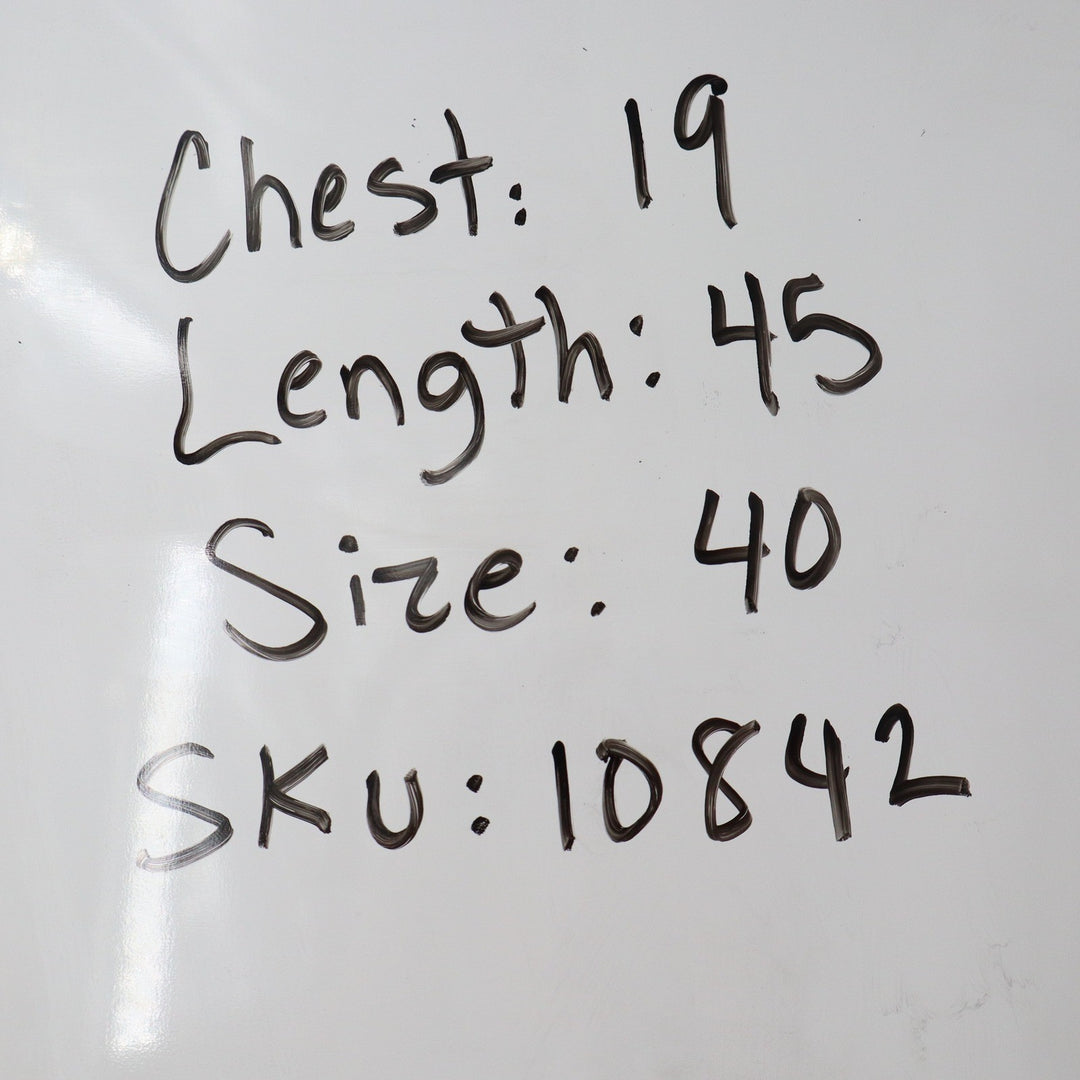 Chest: 19
Length: 45
Size: 40
SKU: 10842